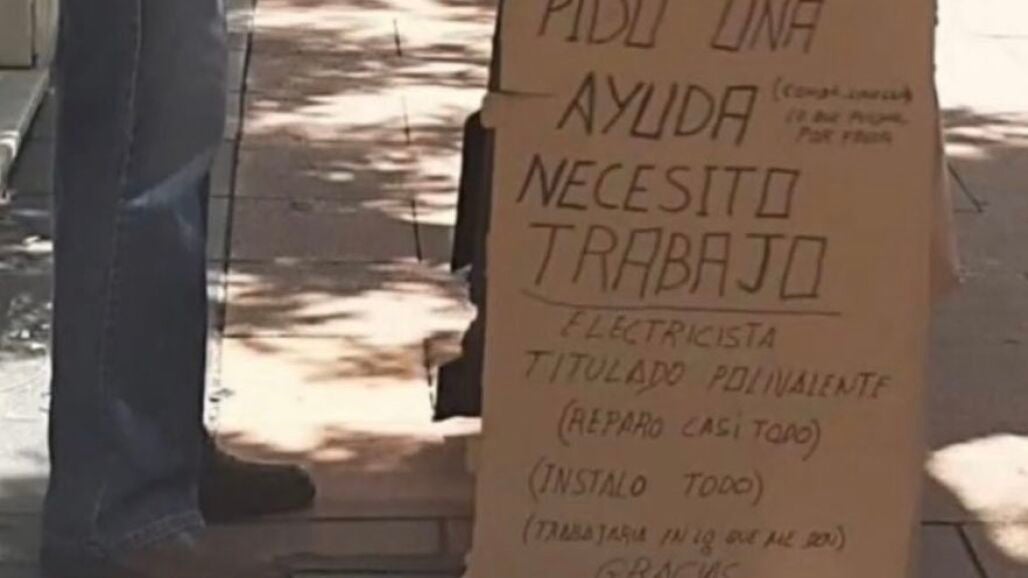 PIDO UNA
AYUDA
(COMIDA, DINERO)
LO QUE PUEDAN
POR FAVOR
NECESITO
TRABAJO
ELECTRICISTA
TITULADO POLIVALENTE
(REPARO CASI TODO)
(INSTALO TODO)
(TRABAJARIA IN LO QUE ME DEN)
GRACIAS